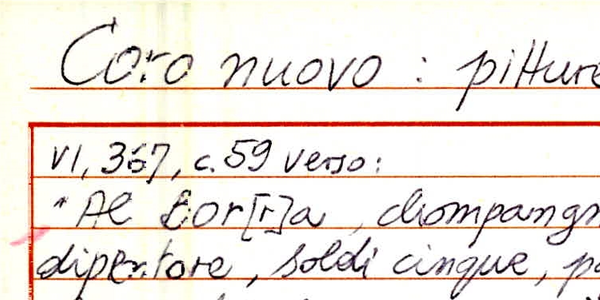 Coro nuovo : pitture
VI, 367, c. 59 verso:
"Al Tor[r]a, chompangn
dipentore, soldi cinque, pa